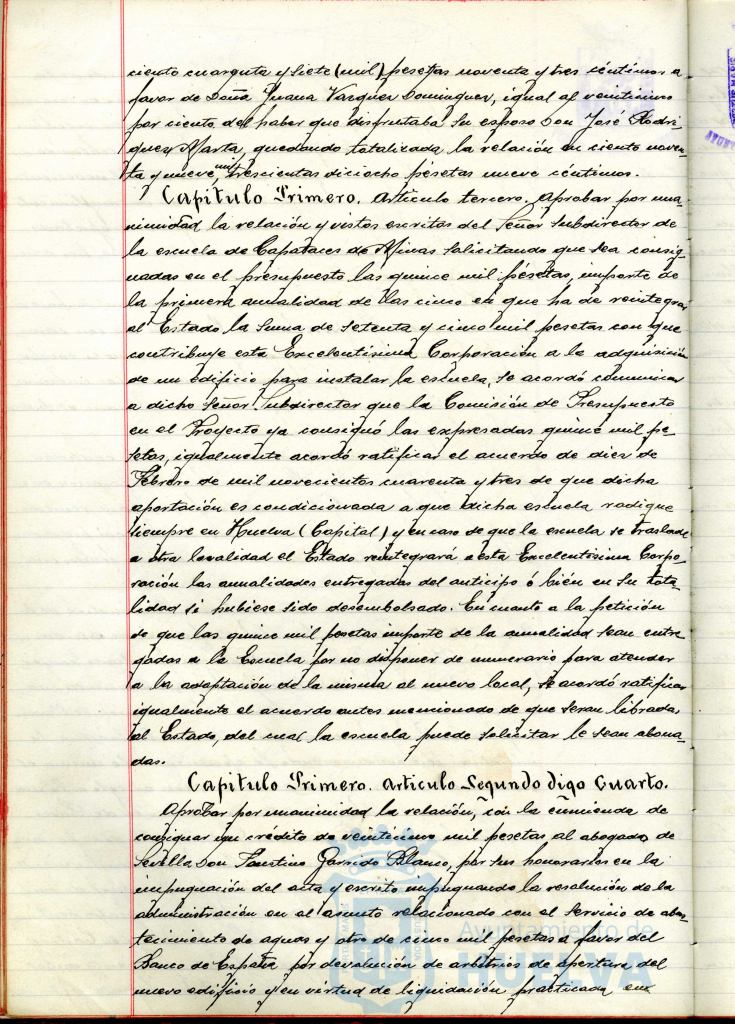 ciento cuarenta y siete (mil) pesetas noventa y tres céntimos a
favor de Doña Juana Vazquez Dominguez, igual al veinticinco
por ciento del haber que disfrutaba su esposo Don José Rodri-
guez Marta, quedando totalizada la relación en ciento noven-
ta y nueve mil trescientas dieciocho pesetas nueve céntimos.
Capítulo Primero. Artículo tercero. Aprobar por una-
nimidad la relación y vistos escritos del Señor Subdirector de
la escuela de Capataces de Minas solicitando que sea consig-
nadas en el presupuesto las quince mil pesetas, importe de
la primera anualidad de las cinco en que ha de reintegrar
al Estado la suma de setenta y cinco mil pesetas con que
contribuye esta Excelentísima Corporación a la adquisición
de un edificio para instalar la escuela, se acordó comunicar
a dicho Señor Subdirector que la Comisión de Presupuesto
en el Proyecto ya consignó las expresadas quince mil pe-
setas, igualmente acordó ratificar el acuerdo de diez de
Febrero de mil novecientos cuarenta y tres de que dicha
aportación es condicionada a que dicha escuela radique
siempre en Huelva (Capital) y en caso de que la escuela se traslade
a otra localidad el Estado reintegrará a esta Excelentísima Corpo-
ración las anualidades entregadas del anticipo ó bién en su tota-
lidad si hubiese sido desembolsado. En cuanto a la petición
de que las quince mil pesetas importe de la anualidad sean entre
gadas a la Escuela por no disponer de numerario para atender
a la adaptación de la misma al nuevo local, se acordó ratificar
igualmente el acuerdo antes mencionado de que seran libradas
al Estado, del cual la escuela puede solicitar le sean abona-
das.
Capitulo Primero. Articulo Segundo digo Cuarto.
Aprobar por unanimidad la relación, con la enmienda de
consignar un crédito de veinticinco mil pesetas al abogado de
Sevilla Don Faustino Garrido Blanco, por sus honorarios en la
impugnación del acta y escrito impugnando la resolución de la
administración en el asunto relacionado con el servicio de abas
tecimiento de aguas y otro de cinco mil pesetas a favor del
Banco de España por devolución de arbitrios de apertura del
nuevo edificio y en virtud de liquidación practicada en
Ayuntamiento de
HUELVA